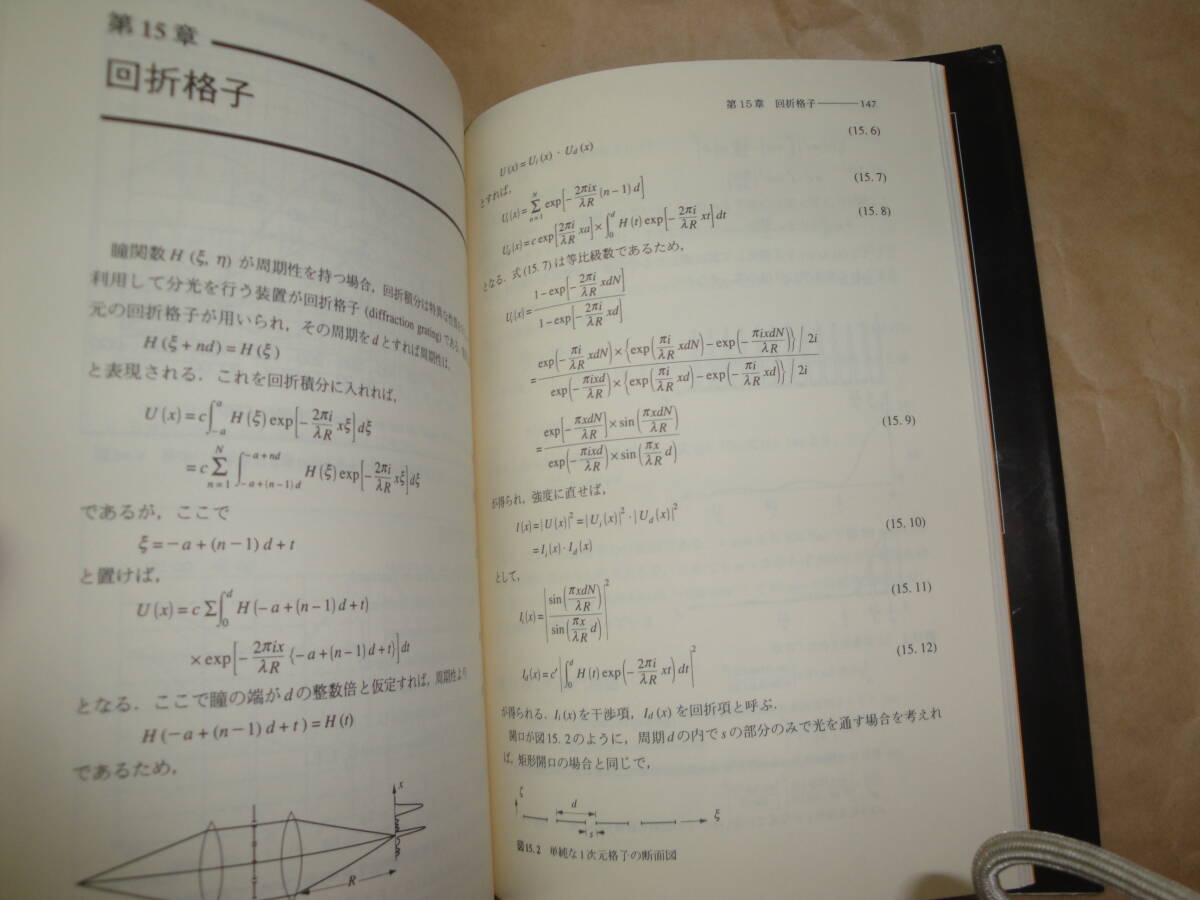 第15章
回折格子
瞳関数 H (ξ, η) が周期性を持つ場合，回折積分は特異な性質
利用して分光を行う装置が回折格子 (diffraction grating) である．
元の回折格子が用いられ，その周期を d とすれば周期性は，
H (ξ + nd) = H (ξ)
と表現される．これを回折積分に入れれば，
U (x) = c∫_{-a}^{a} H (ξ) exp[-\frac{2πi}{λR} xξ] dξ
= c Σ_{n=1}^{N} ∫_{-a+(n-1)d}^{-a+nd} H (ξ) exp[-\frac{2πi}{λR} xξ] dξ
であるが，ここで
ξ = -a + (n-1) d + t
と置けば，
U (x) = c Σ∫_{0}^{d} H (-a + (n-1) d + t)
× exp[-\frac{2πix}{λR} {-a + (n-1) d + t}] dt
となる．ここで瞳の端が d の整数倍と仮定すれば，周期性より
H (-a + (n-1) d + t) = H (t)
であるため，
x
R
第15章 回折格子――147
U (x) = U_i (x) · U_d (x) (15. 6)
とすれば，
U_i (x) = Σ_{n=1}^{N} exp[-\frac{2πix}{λR} (n-1) d] (15. 7)
U_d (x) = c exp[\frac{2πi}{λR} xa] × ∫_{0}^{d} H (t) exp[-\frac{2πi}{λR} xt] dt (15. 8)
となる．式 (15. 7) は等比級数であるため，
U_i (x) = \frac{1 - exp[-\frac{2πi}{λR} xdN]}{1 - exp[-\frac{2πi}{λR} xd]}
= \frac{exp(-\frac{πi}{λR} xdN) × {exp(\frac{πi}{λR} xdN) - exp(-\frac{πixdN}{λR})} / 2i}{exp(-\frac{πixd}{λR}) × {exp(\frac{πi}{λR} xd) - exp(-\frac{πi}{λR} xd)} / 2i}
= \frac{exp[-\frac{πxdN}{λR}] × sin(\frac{πxdN}{λR})}{exp(-\frac{πixd}{λR}) × sin(\frac{πx}{λR} d)} (15. 9)
が得られ，強度に直せば，
I (x) = |U (x)|^2 = |U_i (x)|^2 · |U_d (x)|^2 (15. 10)
= I_i (x) · I_d (x)
として，
I_i (x) = |\frac{sin(\frac{πxdN}{λR})}{sin(\frac{πx}{λR} d)}|^2 (15. 11)
I_d (x) = c' |∫_{0}^{d} H (t) exp(-\frac{2πi}{λR} xt) dt|^2 (15. 12)
が得られる．I_i (x) を干渉項，I_d (x) を回折項と呼ぶ．
開口が図15. 2のように，周期 d の内で s の部分のみで光を通す場合を考えれ
ば，矩形開口の場合と同じで，
ζ
d
ξ
s
図15. 2 単純な1次元格子の断面図